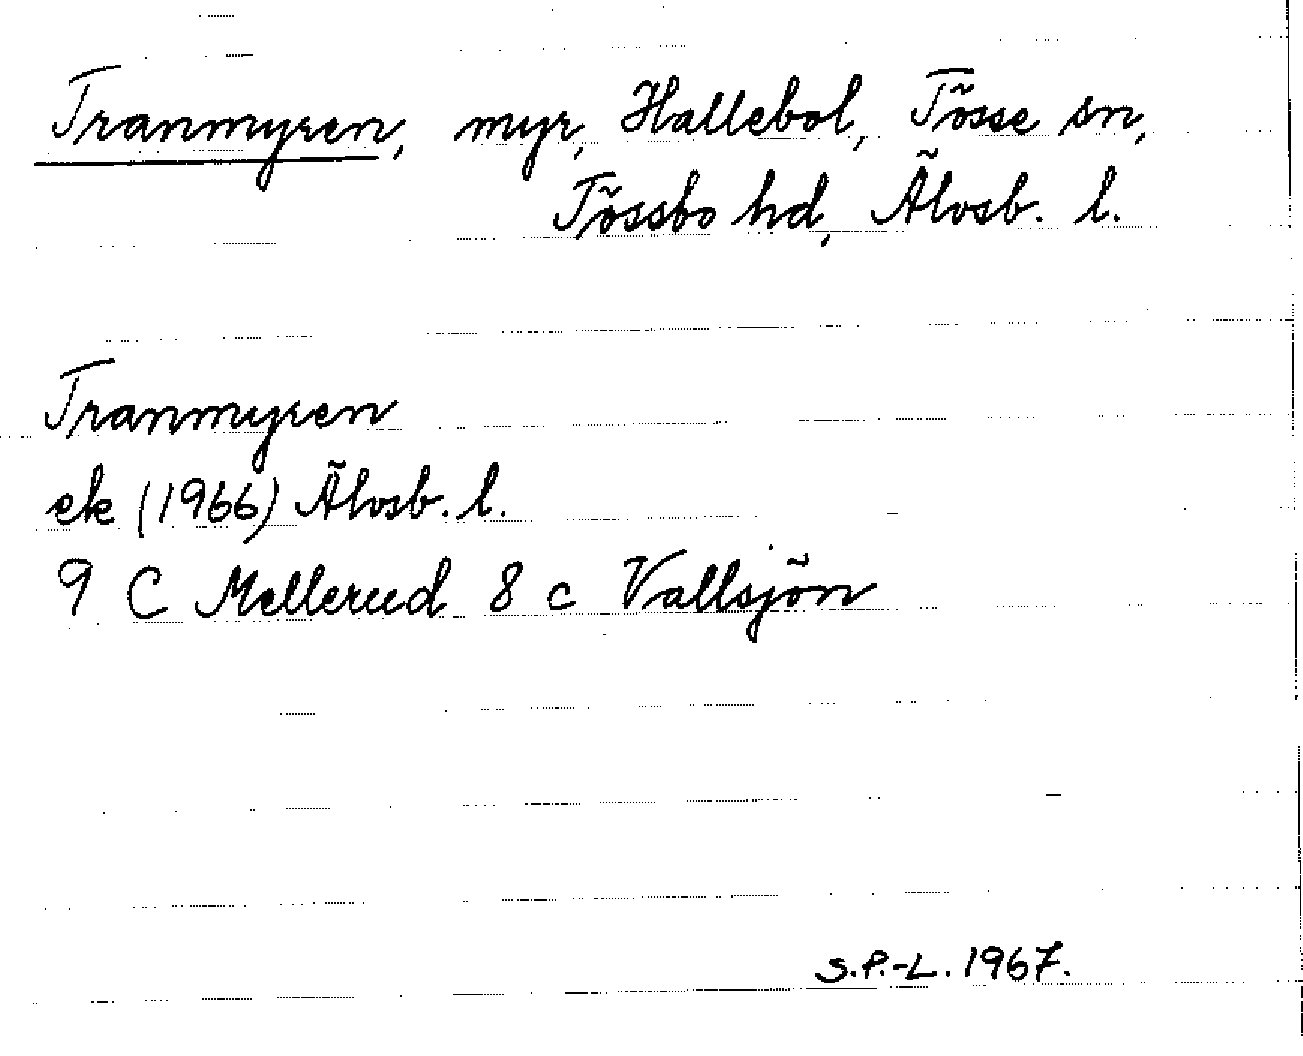 Tranmyren, myr, Hallebol, Tösse sn,
Tössbo hd, Älvsb. l.
Tranmyren
ek (1966) Älvsb. l.
9 C Mellerud 8 c Vallsjön
S.P.-L. 1967.